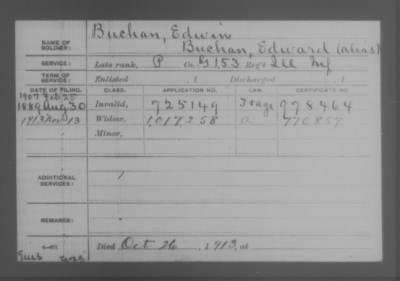 NAME OF SOLDIER: Buchan, Edwin
Buchan, Edward (alias)
SERVICE: Late rank, P Co. G 153 Reg't Ill Inf
TERM OF SERVICE: Enlisted , 1 Discharged , 1
DATE OF FILING. CLASS. APPLICATION NO. LAW. CERTIFICATE NO.
1907 Feb 25
1889 Aug 30 Invalid, 725149 978464
1913 Nov 13 Widow, 1,017,258 770857
Minor,
ADDITIONAL SERVICES:
REMARKS:
Died Oct 26, 1913, at